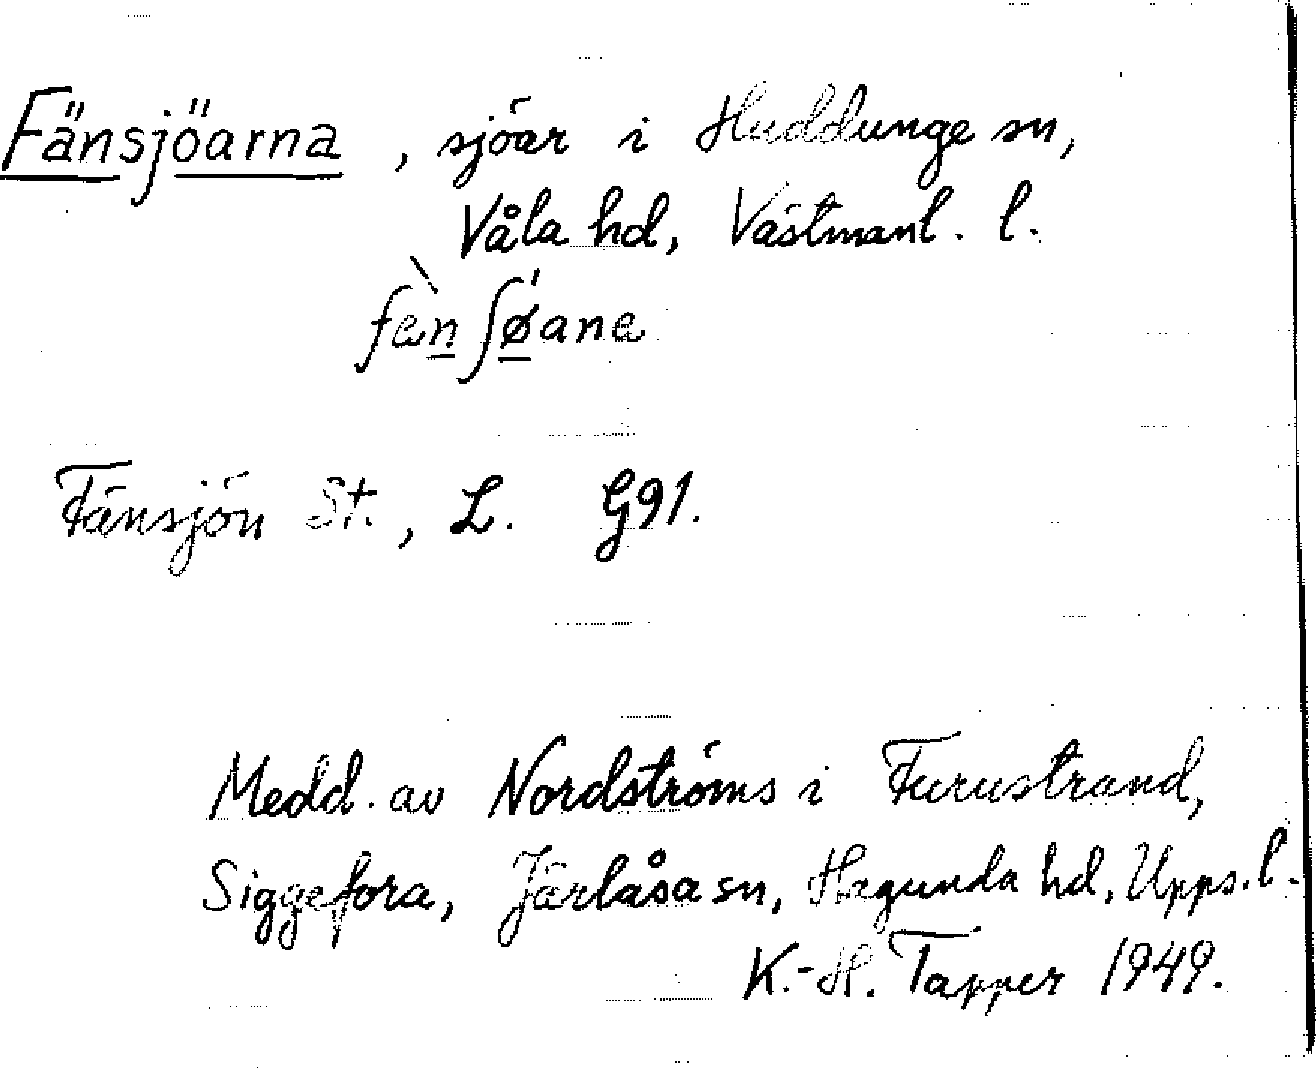 Fänsjöarna, sjöar i Huddunge sn,
Våla hd, Västmanl. l.
fæ̀nʃǿane
Fänsjön St., L. G91.
Medd. av Nordströms i Furustrand,
Siggefora, Järlåsa sn, Hagunda hd, Upps. l.
K.-H. Tapper 1949.